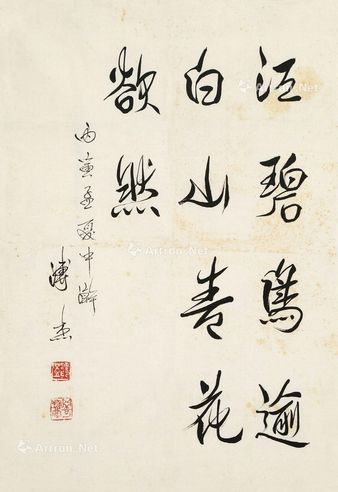 江碧鸟逾
白山青花
欲然
丙寅孟夏中浣
溥杰
Artron.Net
Artron.Net
Artron.Net
Artron.Net